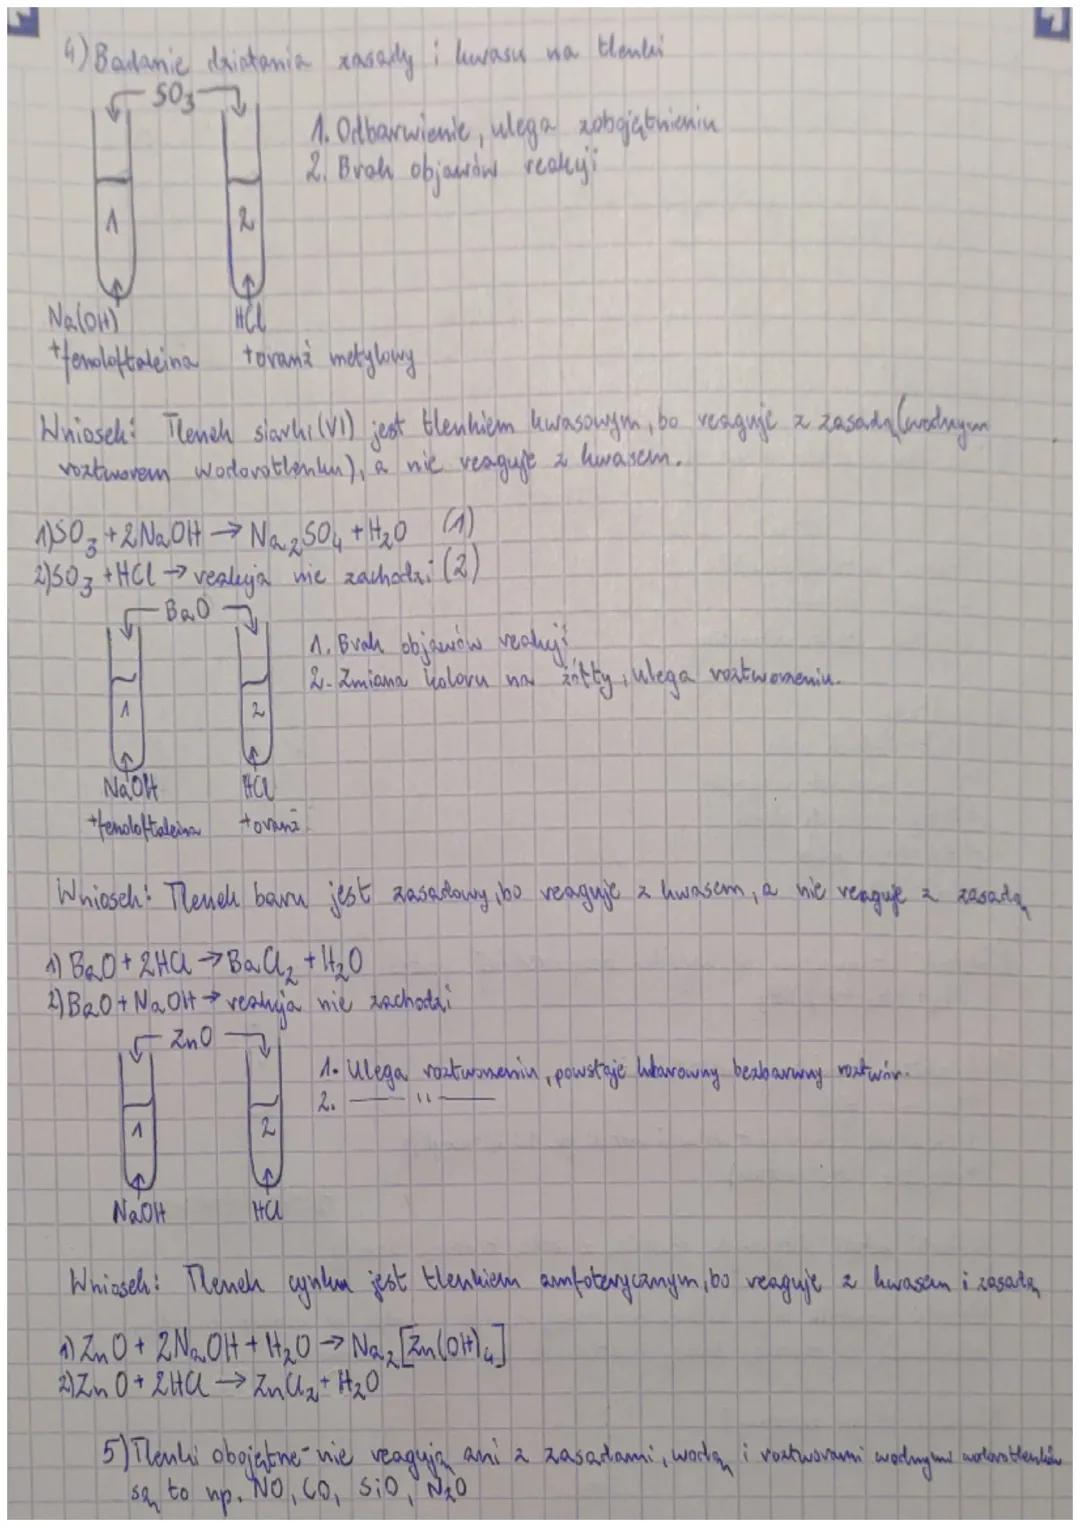 4) Badanie działania zasady i kwasu na tlenki
SO3
1. Odbarwienie, ulega zobojętnieniu
2. Brak objawów reakcji
1 2
Na(OH) HCl
+fenoloftaleina +oranż metylowy
Wniosek: Tlenek siarki (VI) jest tlenkiem kwasowym, bo reaguje z zasadą (wodnym
roztworem wodorotlenku), a nie reaguje z kwasem.
1) SO3 + 2NaOH → Na2SO4 + H2O (1)
2) SO3 + HCl → reakcja nie zachodzi (2)
BaO
1. Brak objawów reakcji
2. Zmiana koloru na żółty, ulega roztworzeniu.
1 2
NaOH HCl
+fenoloftaleina +oranż
Wniosek: Tlenek baru jest zasadowy, bo reaguje z kwasem, a nie reaguje z zasadą
1) BaO + 2HCl → BaCl2 + H2O
2) BaO + NaOH → reakcja nie zachodzi
ZnO
1. Ulega roztworzeniu, powstaje klarowny bezbarwny roztwór.
2. —— 11 ——
1 2
NaOH HCl
Wniosek: Tlenek cynku jest tlenkiem amfoterycznym, bo reaguje z kwasem i zasadą
1) ZnO + 2NaOH + H2O → Na2[Zn(OH)4]
2) ZnO + 2HCl → ZnCl2 + H2O
5) Tlenki obojętne - nie reagują ani z zasadami, wodą i roztworami wodnymi wodorotlenków
są to np. NO, CO, SiO, N2O